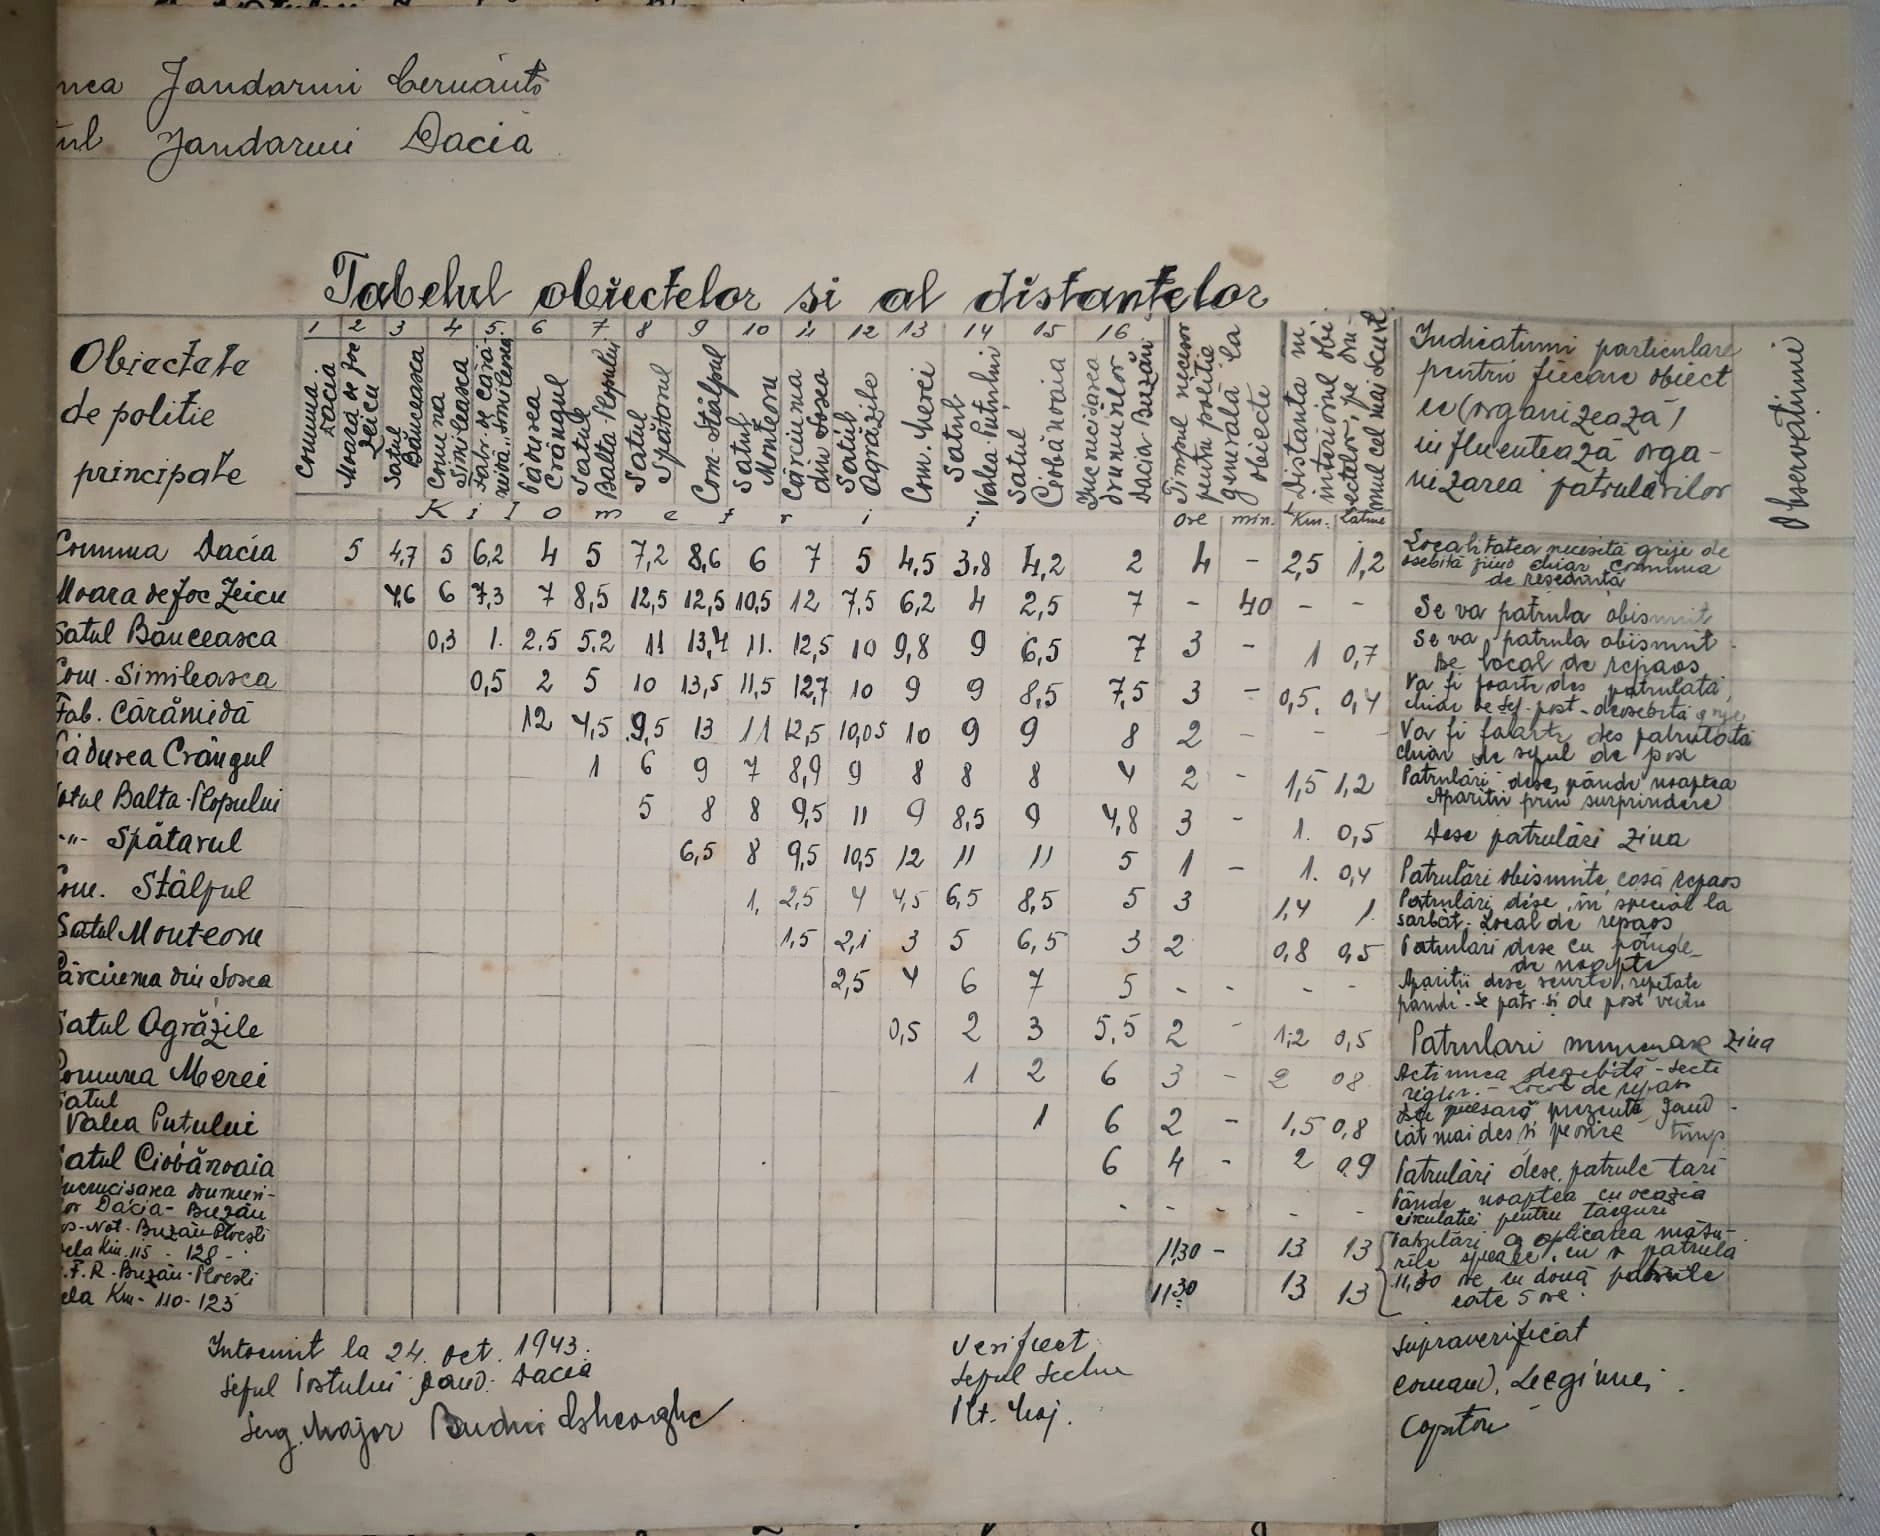 Jandarmi Cernăuți
Jandarmi Dacia
Tabelul obiectelor si al distantelor
Obiectele
de politie
principale
1 2 3 4 5 6 7 8 9 10 11 12 13 14 15 16
Comuna Dacia
Moara de foc Zeicu
Satul Bănceasca
Comuna Simileasca
Fabr. de cără-
midă „Simileasca
Pădurea Crângul
Satul Balta-Plopului
Satul Spătarul
Com. Stâlpul
Satul Monteoru
Cârciuma din Sosea
Satul Ogrăzile
Com. Merei
Satul Valea Putului
Satul Ciobănoaia
Incrucisarea
drumurilor
Dacia-Buzău
Timpul necesar
pentru politie
generală la
obiecte
Distanta in
interiorul obi-
ectelor, pe dru-
mul cel mai scurt
Indicatiuni particulare
pentru fiecare obiect
ce (organizează)
influentează orga-
nizarea patrulărilor
Observatiuni
Kilometrii ore min. Km. Latime
Comuna Dacia 5 4,7 5 6,2 4 5 7,2 8,6 6 7 5 4,5 3,8 4,2 2 4 - 2,5 1,2
Localitatea necesită grije de
osebită fiind chiar comuna
de resedintă
Moara de foc Zeicu 4,6 6 7,3 7 8,5 12,5 12,5 10,5 12 7,5 6,2 4 2,5 7 - 40 - - Se va patrula obisnuit
Satul Bănceasca 0,3 1. 2,5 5,2 11 13,4 11. 12,5 10 9,8 9 6,5 7 3 - 1 0,7 Se va patrula obisnuit
de local de repaos
Com. Simileasca 0,5 2 5 10 13,5 11,5 12,7 10 9 9 8,5 7,5 3 - 0,5. 0,4 Va fi foarte des patrulată,
chiar de sef. post - deosebită grije
Fab. Cărămidă 12 4,5 9,5 13 11 12,5 10,05 10 9 9 8 2 - - - Va fi foarte des patrulată
chiar de seful de post
Pădurea Crângul 1 6 9 7 8,9 9 8 8 8 4 2 - 1,5 1,2 Patrulări dese, pândi noaptea
Aparitii prin surprindere
Satul Balta-Plopului 5 8 8 9,5 11 9 8,5 9 4,8 3 - 1. 0,5 Dese patrulări ziua
-"- Spătarul 6,5 8 9,5 10,5 12 11 11 5 1 - 1. 0,4 Patrulări obisnuite, casă repaos
Com. Stâlpul 1, 2,5 4 4,5 6,5 8,5 5 3 1,4 1. Patrulări dese, in special la
sărbăt. Local de repaos
Satul Monteoru 1,5 2,1 3 5 6,5 3 2 0,8 0,5 Patrulari dese cu pânde
de noapte
Cârciuma din Sosea 2,5 4 6 7 5 - - - - Aparitii dese scurte, repetate
pândi. se patr. si de post vecin
Satul Ogrăzile 0,5 2 3 5,5 2 - 1,2 0,5 Patrulari numeroase ziua
Comuna Merei 1 2 6 3 - 2 08 Actiunea deosebită - secte
Local de repaos
Satul
Valea Putului 1 6 2 - 1,5 0,8 prezenta Jand.
cât mai des si pe orice timp
Satul Ciobănoaia 6 4 - 2 0,9 Patrulări dese, patrule tari
Incrucisarea drumuri-
lor Dacia - Buzău - - - - - Pânde noaptea cu ocazia
circulatiei pentru targuri
Nat. Buzău-Ploesti
dela Km. 115 - 128 - 11,30 - 13 13 Patrulări si aplicarea măsu-
rile speciale, cu o patrula
C.F.R. Buzău-Ploesti
dela Km - 110-123 11 30 13 13 11,30 ore cu două patrule
cate 5 ore.
Intocmit la 24. oct. 1943.
Seful Postului Jand. Dacia
Serg. Major Gheorghe
Verificat
Seful Sectiei
Plt. Maj.
Supraverificat
Comand. Legiunei.
Capitan